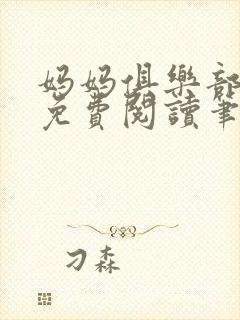 妈妈俱樂部
免費閱讀筆
刁森